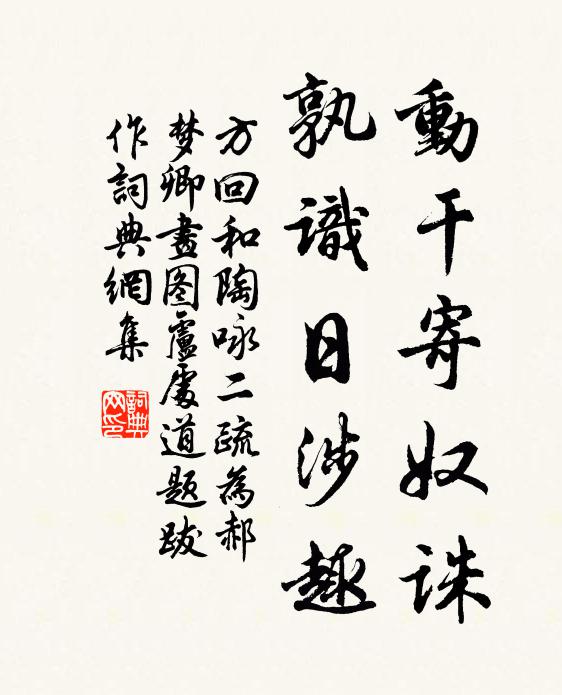 動干寄奴誅
孰識日涉趣
方回和陶咏二疏為郝
梦卿畫图盧處道題跋
作詞典網集
詞典
网印